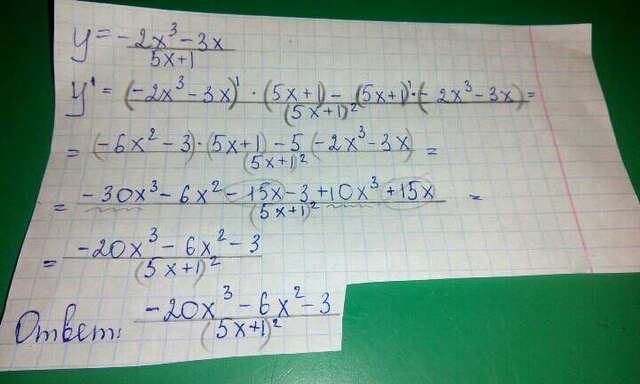 y = -2x³ - 3x / 5x+1
y' = (-2x³ - 3x)' · (5x+1) - (5x+1)' · (-2x³ - 3x) / (5x+1)² =
= (-6x² - 3) · (5x+1) - 5 (-2x³ - 3x) / (5x+1)² =
= -30x³ - 6x² - 15x - 3 + 10x³ + 15x / (5x+1)² =
= -20x³ - 6x² - 3 / (5x+1)²
Ответ: -20x³ - 6x² - 3 / (5x+1)²